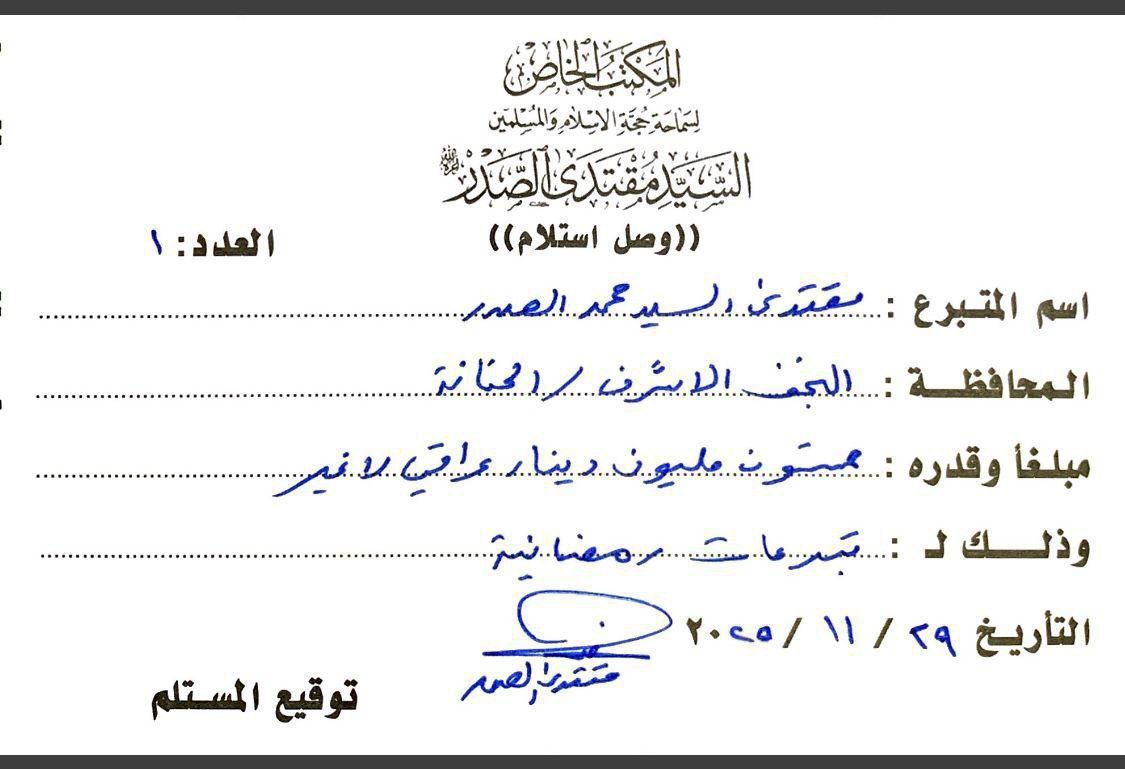 المكتب الخاص
لسماحة حجة الاسلام والمسلمين
السيد مقتدى الصدر
((وصل استلام))
العدد: ١
اسم المتبرع : مقتدى السيد محمد الصدر
المحافظة : النجف الاشرف / الحنانة
مبلغاً وقدره : ستون مليون دينار عراقي لاغير
وذلك لـ : تبرعات رمضانية
التأريخ ٢٩ / ١١ / ٢٠٢٥
مقتدى الصدر
توقيع المستلم